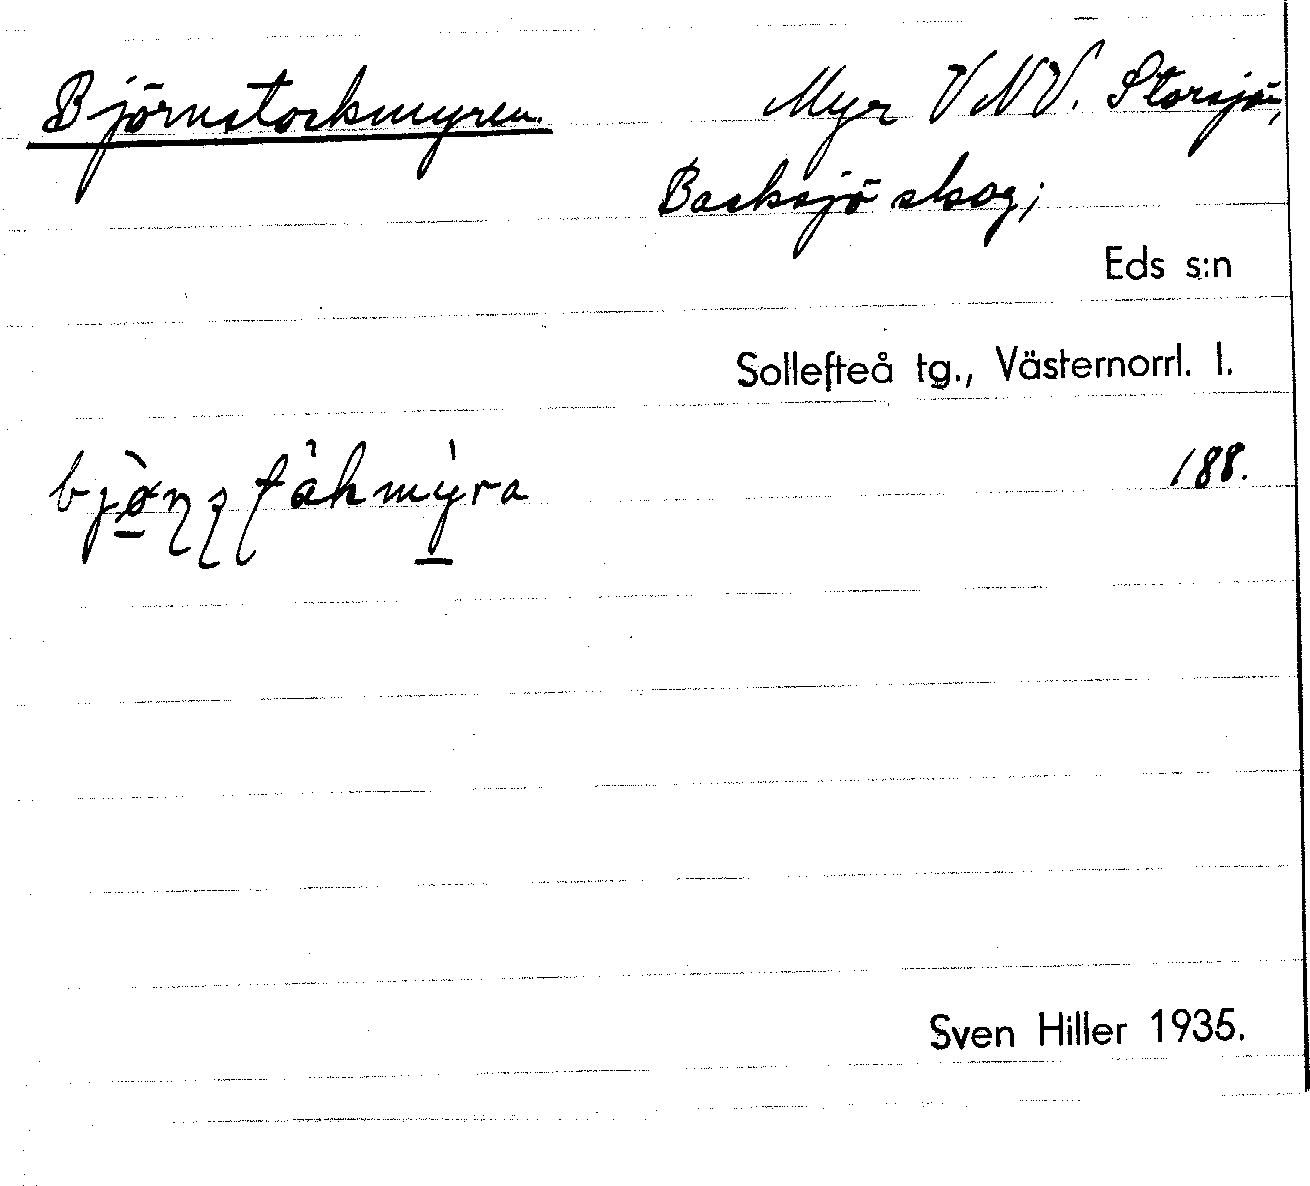 Björnstockmyren. Myr VNV. Storsjön,
Backsjö skog;
Eds s:n
Sollefteå tg., Västernorrl. l.
188.
Sven Hiller 1935.